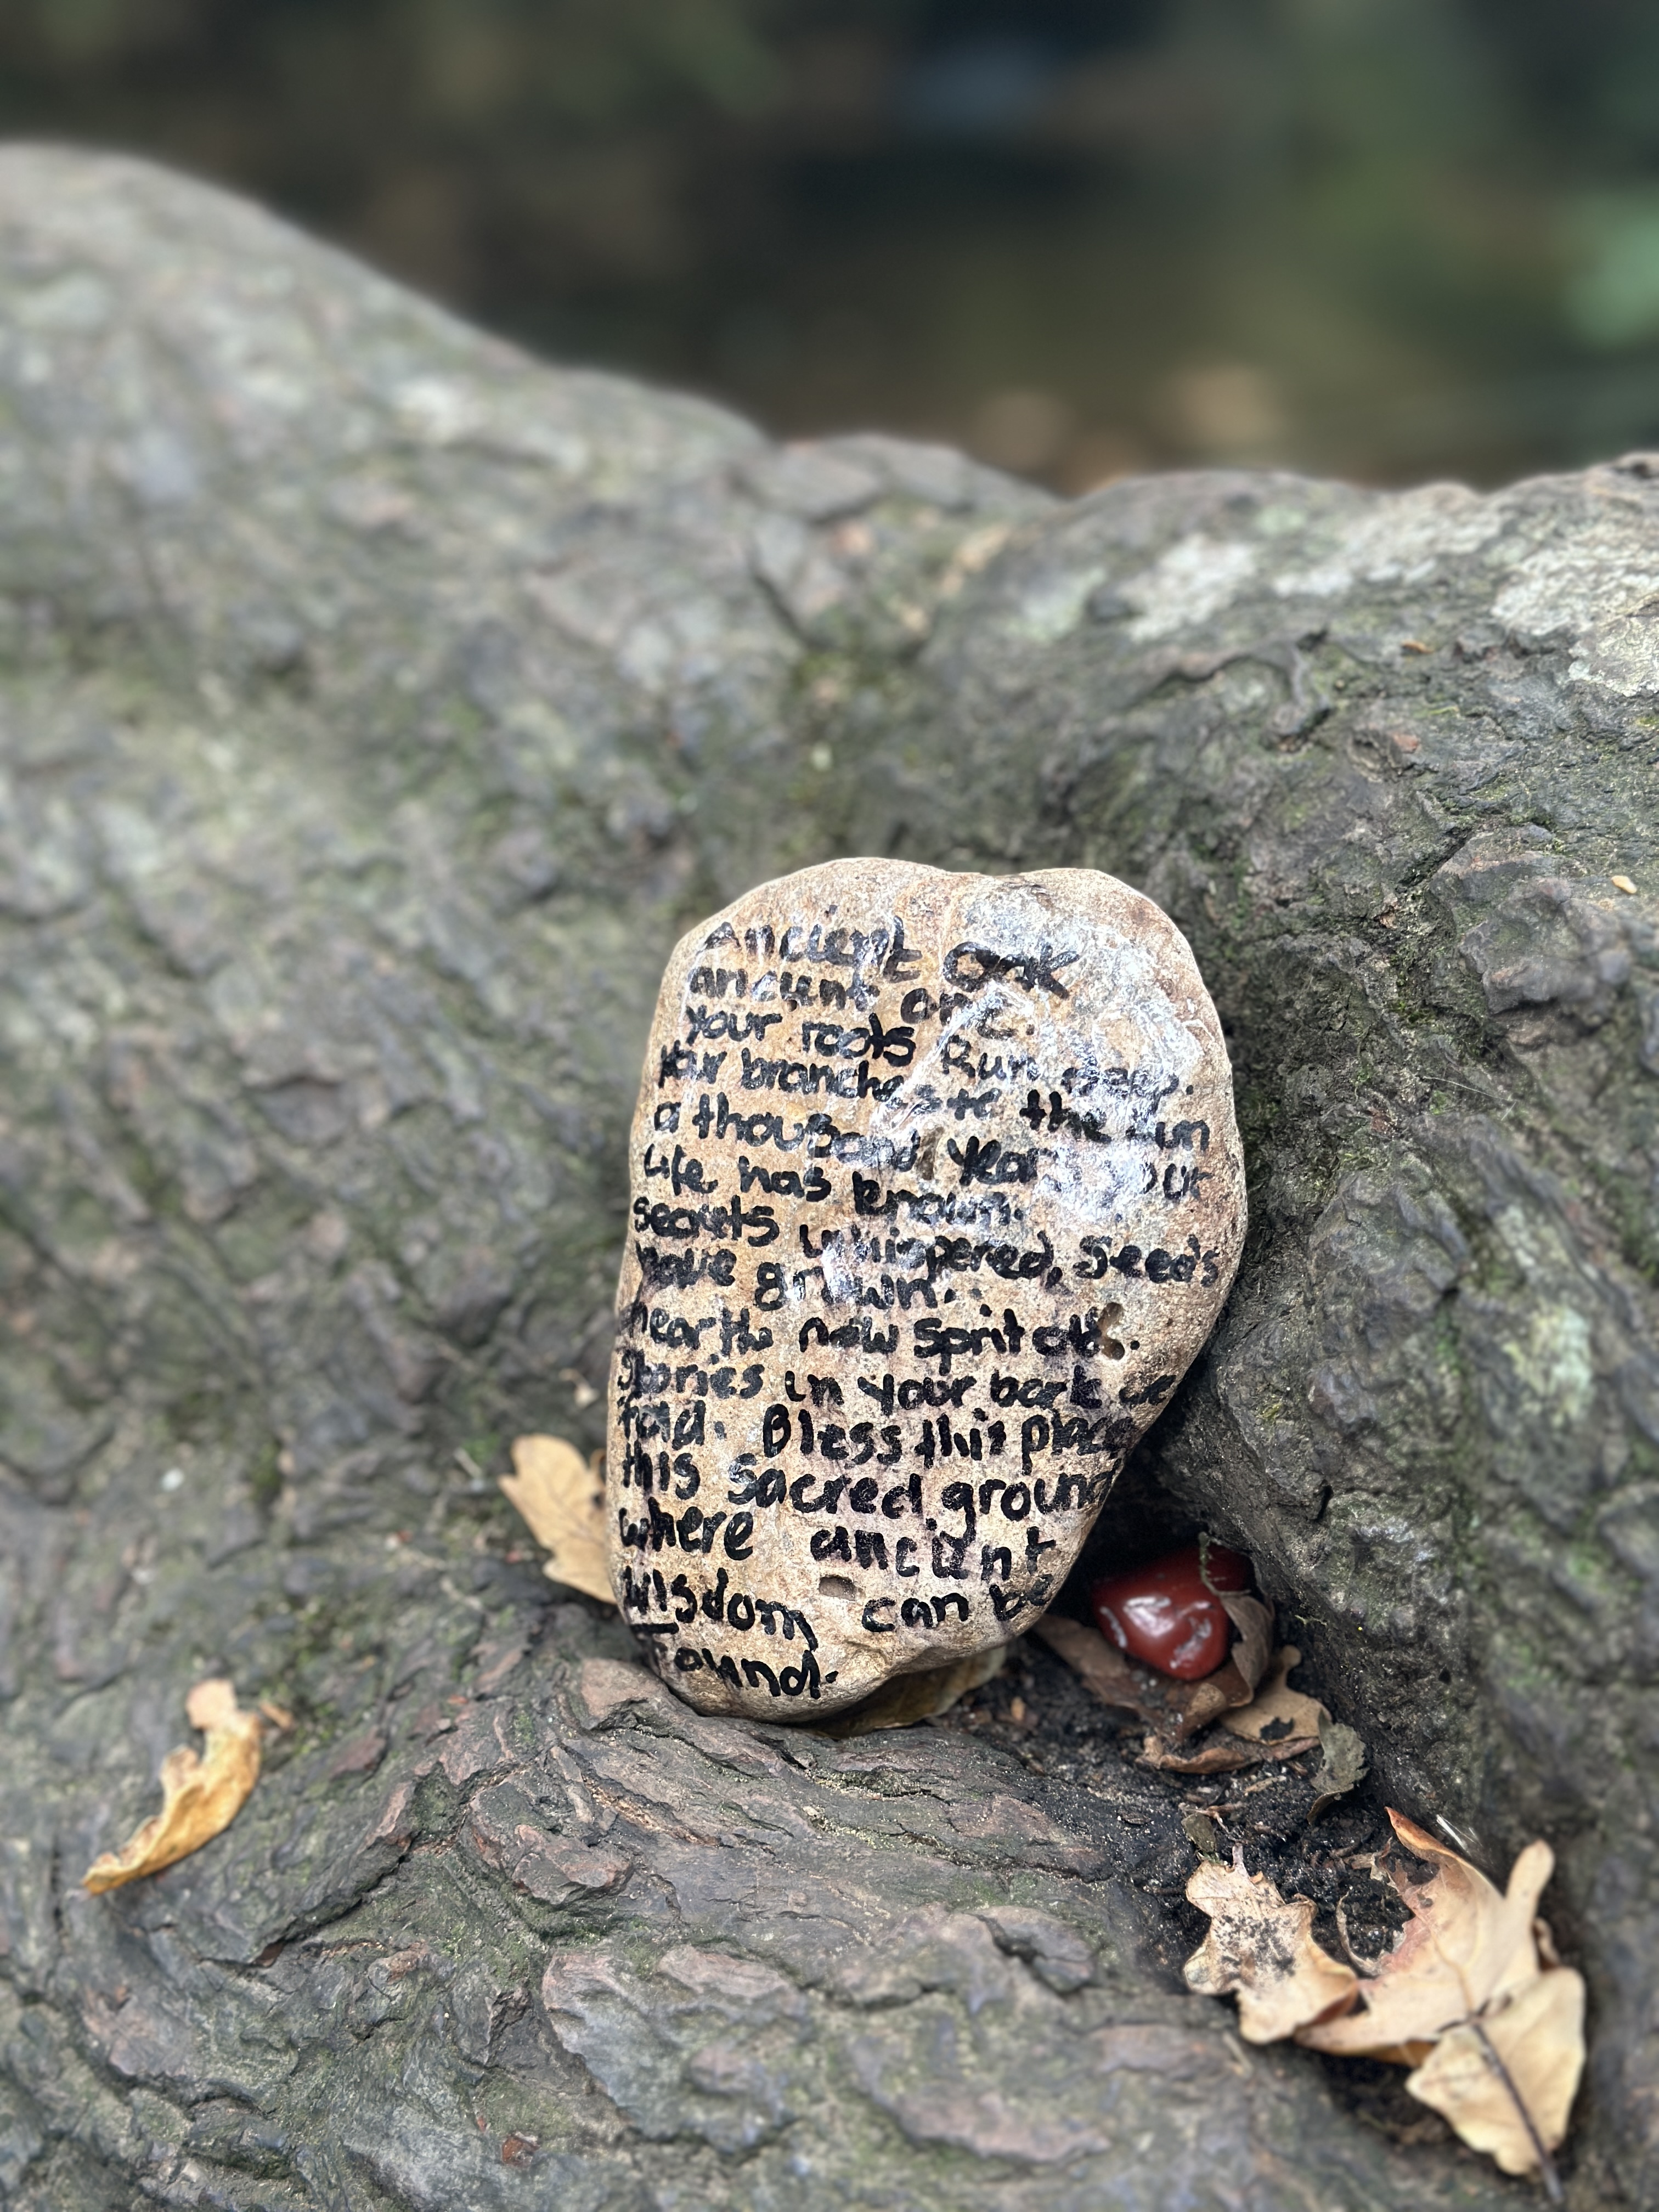 Ancient Oak
ancient one.
your roots Run deep.
Your branches to the sun
a thousand years your
Life has known.
secrets whispered, seeds
have grown.
hearth now sprit old.
stories in your bark we
fold. Bless this place
this sacred ground
where ancient
wisdom can be
Found.